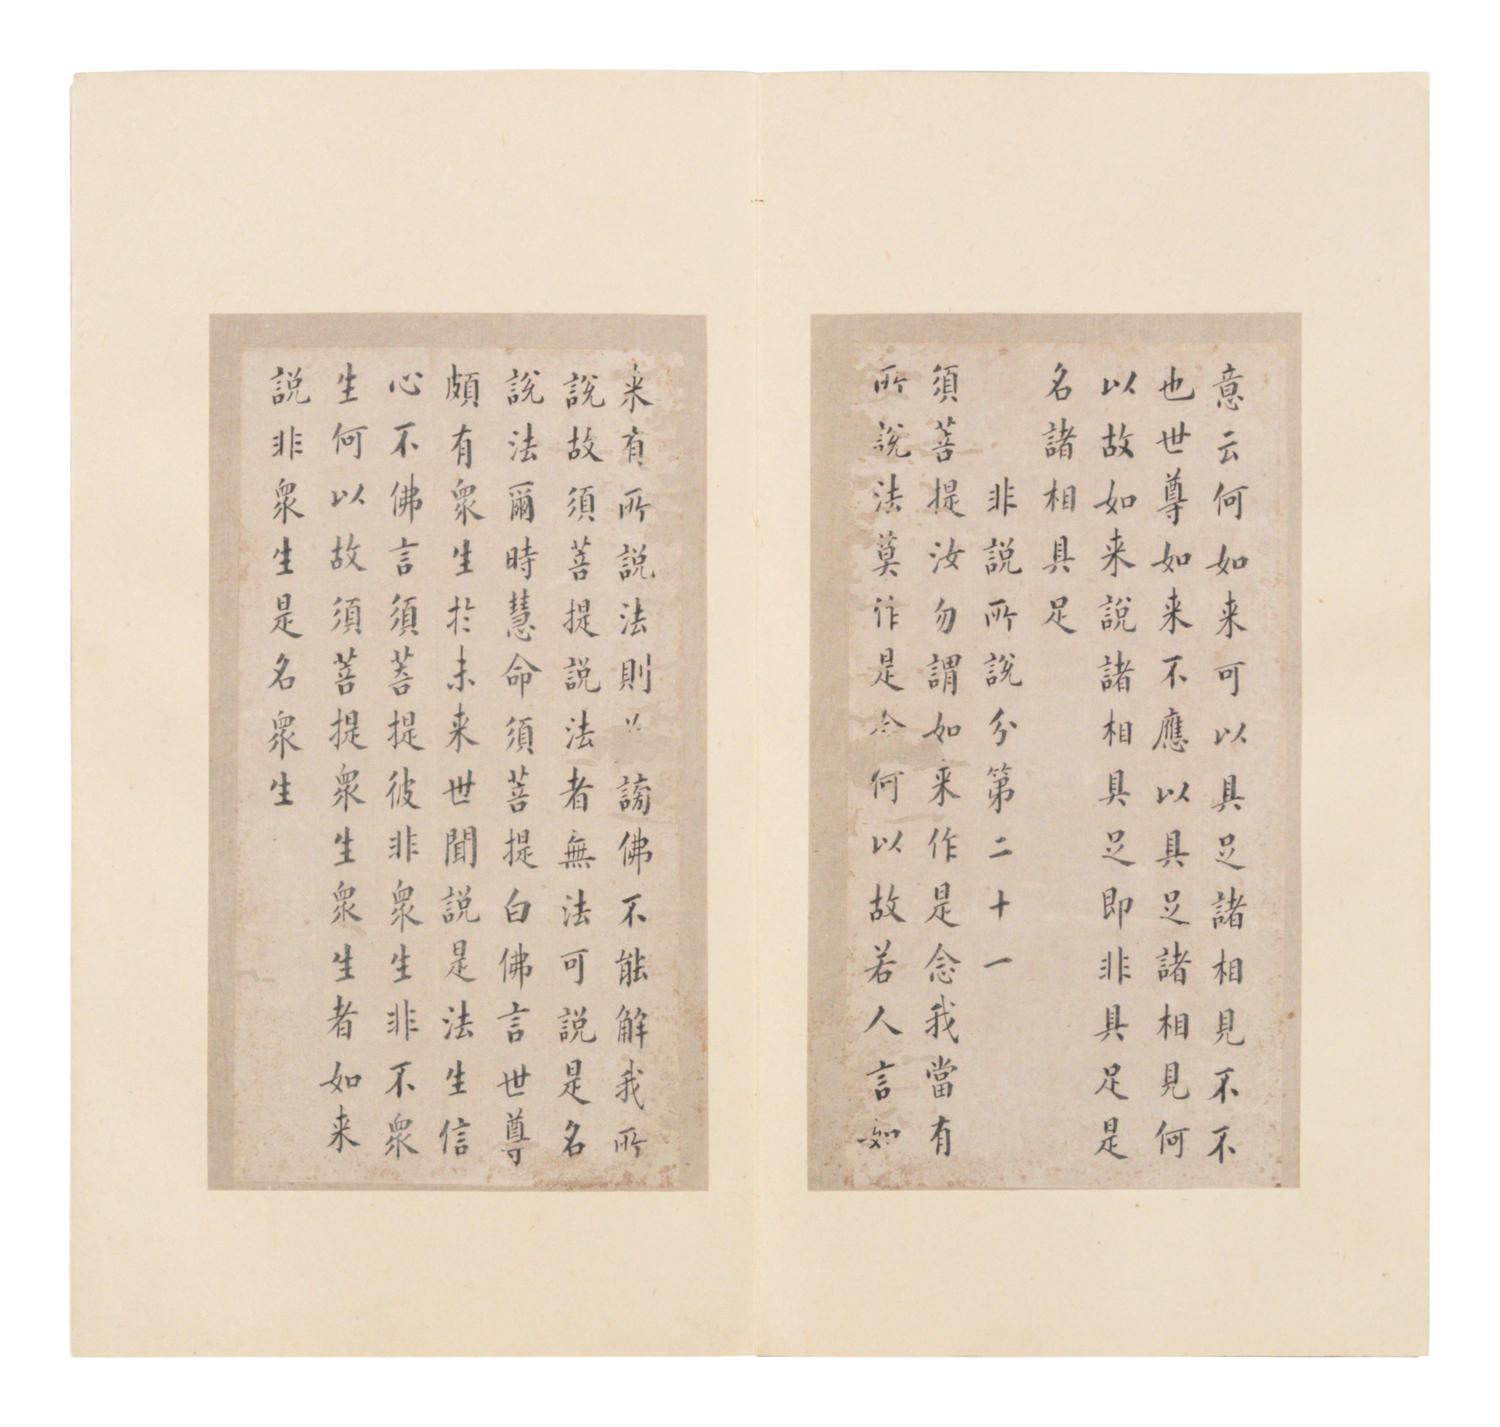 意云何如来可以具足諸相見不不
也世尊如来不應以具足諸相見何
以故如来說諸相具足即非具足是
名諸相具足
非説所說分第二十一
須菩提汝勿謂如来作是念我當有
所說法莫作是念何以故若人言如
来有所説法則 謗佛不能解我所
說故須菩提説法者無法可説是名
說法爾時慧命須菩提白佛言世尊
頗有衆生於未来世聞説是法生信
心不佛言須菩提彼非衆生非不衆
生何以故須菩提衆生衆生者如来
説非衆生是名衆生